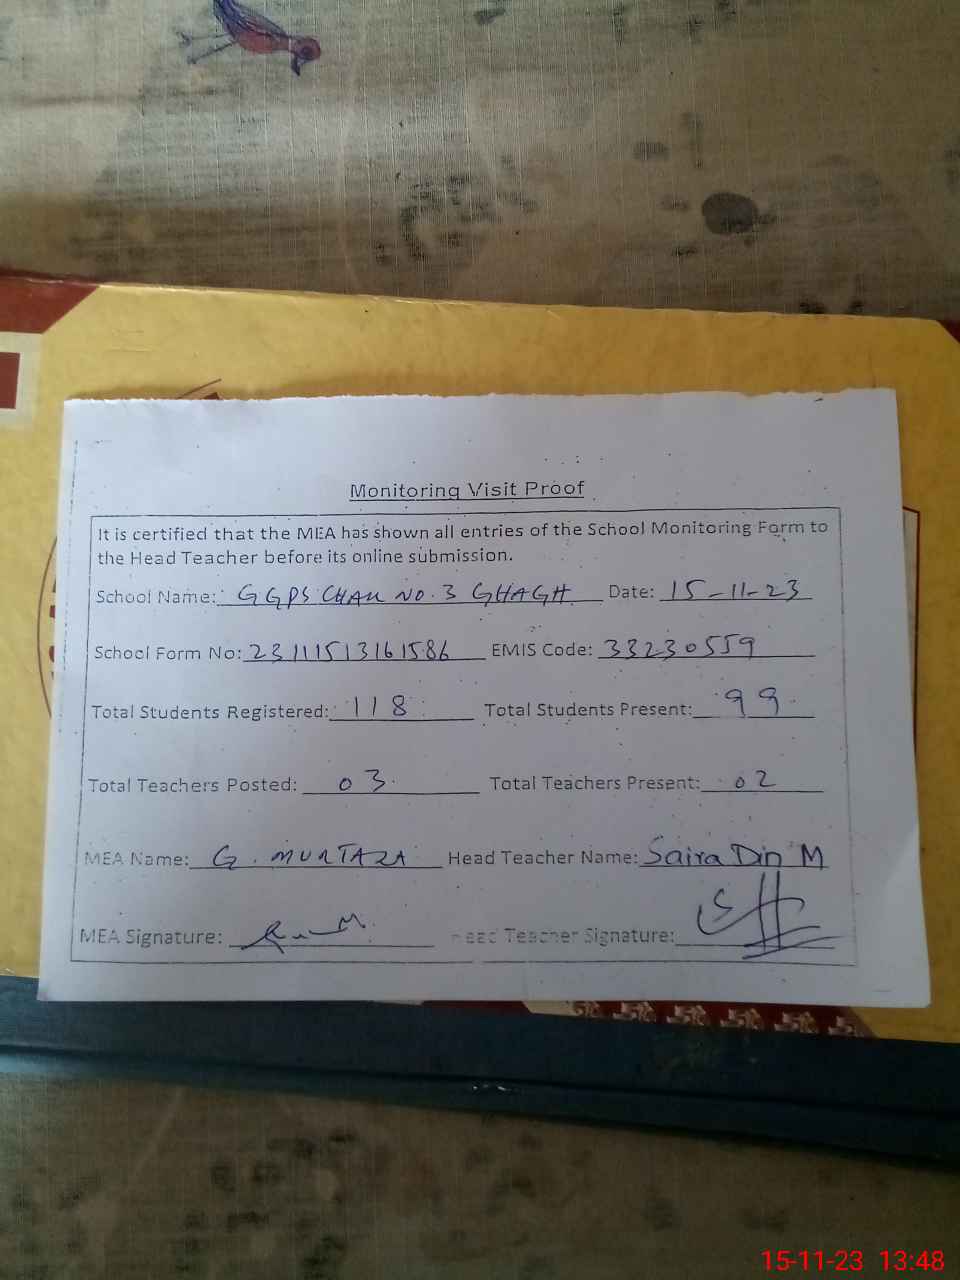 Monitoring Visit Proof
It is certified that the MEA has shown all entries of the School Monitoring Form to
the Head Teacher before its online submission.
School Name: GGPS CHAH NO. 3 GHAGH Date: 15-11-23
School Form No: 23111513161586 EMIS Code: 33230559
Total Students Registered: 118 Total Students Present: 99
Total Teachers Posted: 03 Total Teachers Present: 02
MEA Name: G. MURTAZA Head Teacher Name: Saira Din M
MEA Signature: Head Teacher Signature:
15-11-23 13:48